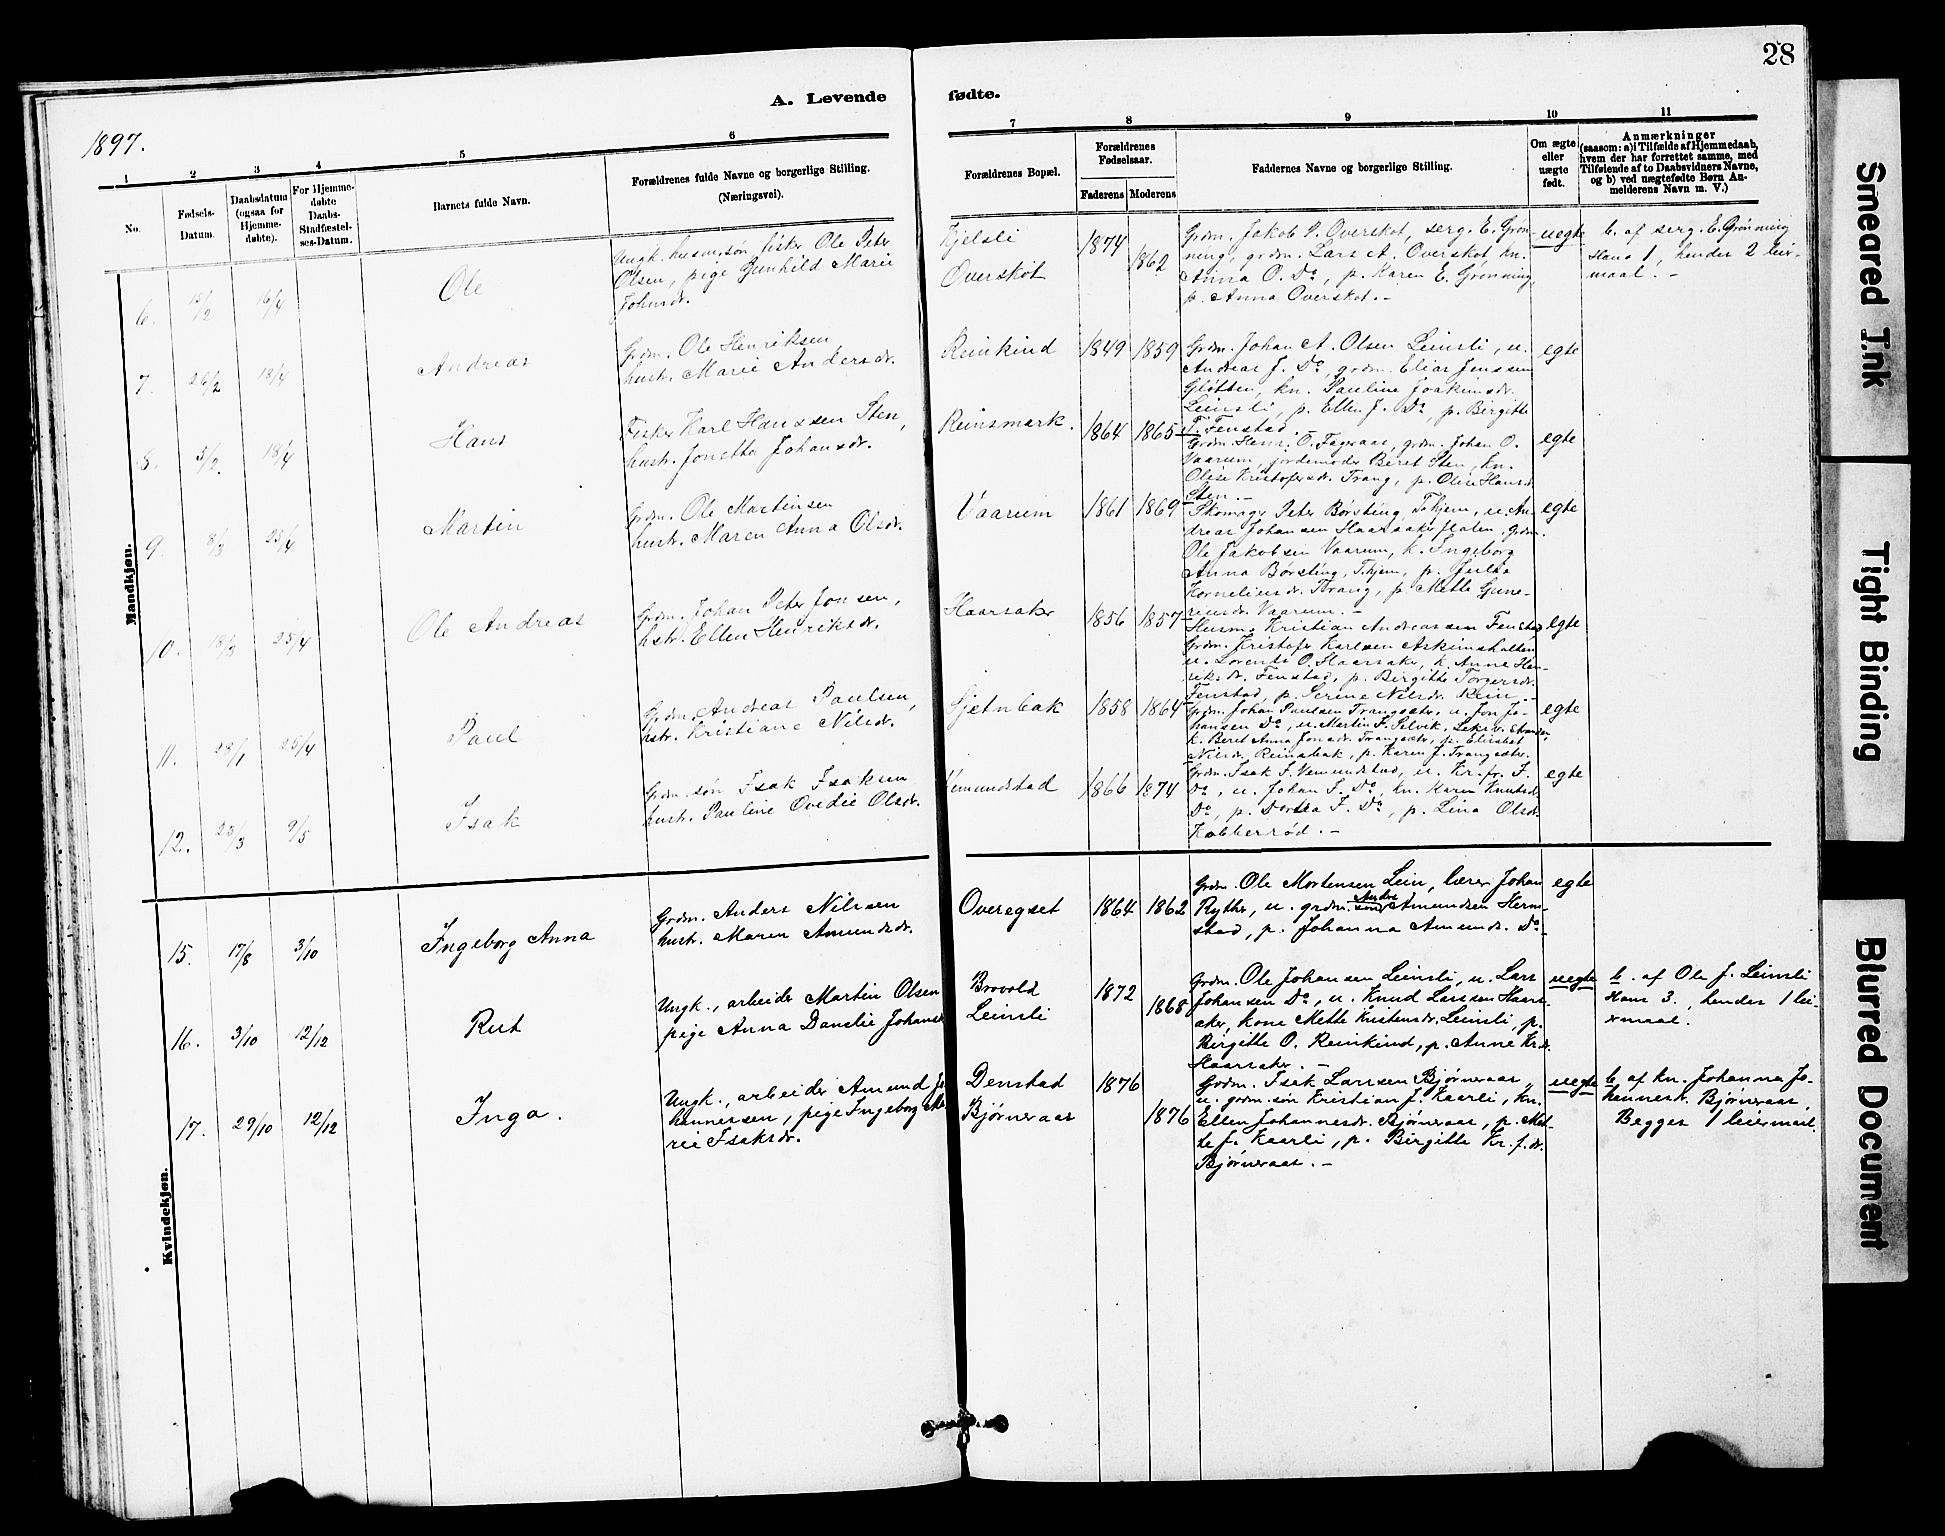 28
A. Levende fødte.
1897.
1 2 3 4 5 6 7 8 9 10 11
No.
Fødsels-
Datum.
Daabsdatum
(ogsaa for
Hjemme-
døbte).
For Hjemme-
døbte
Daabs-
Stadfæstel-
ses-Datum.
Barnets fulde Navn.
Forældrenes fulde Navne og borgerlige Stilling.
(Næringsvei).
Forældrenes Bopæl.
Forældrenes
Fødselsaar.
Faderens Moderens
Faddernes Navne og borgerlige Stilling.
Om ægte
eller
uægte
født.
Anmærkninger
(saasom: a) i Tilfælde af Hjemmedaab,
hvem der har forrettet samme, med
Tilføiende af to Daabsvidners Navne,
og b) ved uægtefødte Børn An-
melderens Navn m. V.)
Mandkjøn.
6. 15/2 16/4 Ole
Ungk. husm. søn fisker Ole Peter
Olsen, pige Gunhild Marie
Johnsdr.
Kjelsli
Overskot
1874 1862
Grdm. Jakob P. Overskot, serg. E. Grøn-
ning, grdm. Lars A. Overskot, kn.
Anna O. Do, p. Karen E. Grønning,
p. Anna Overskot. -
uegte
b. af serg. E. Grønning
Hans 1, hendes 2 leier-
maal. -
7. 26/2 18/4 Andreas
Grdm. Ole Henriksen
hustr. Marie Andersdr.
Reinkind
1849 1859
Grdm. Johan A. Olsen Leinsli, u.
Andreas J. Do, grdm. Elias Jenssen
Gløtten, kn. Pauline Joakimsdr.
Leinsli, p. Ellen J. Do, p. Birgitte
T. Fenstad. -
egte
8. 5/2 18/4 Hans
Fisker Karl Hanssen Sten,
hustr. Jonetta Johansdr.
Reinsmark.
1864 1865
Grdm. Hans O. Fageraas, grdm. Johan O.
Vaarum, jordemoder Beret Sten, kn.
Olise Kristofersdr. Trang, p. Oline Hansd.
Sten. -
egte
9. 8/3 25/4 Martin
Grdm. Ole Martinsen
hustr. Maren Anna Olsdr.
Vaarum
1861 1869
Skomager Peter Børsting, Thjem, u. An-
dreas Johansen Haarsakerflaten, grdm.
Ole Jakobsen Vaarum, k. Ingeborg
Anna Børsting, Thjem, p. Julie
Korneliusdr. Trang, p. Mette Gune-
riusdr. Vaarum. -
egte
10. 18/3 25/4 Ole Andreas
Grdm. Johan Peter Jonsen,
hstr. Ellen Henriksdr.
Haarsaker
1856 1857
Husm. Kristian Andreassen Fenstad
Grdm. Kristofer Karlsen Askimshalten
u. Lorents O. Haarsaker, k. Anne Hen-
riksdr. Fenstad, p. Birgitte Torgersdr.
Fenstad, p. Serine Nilsdr. Rein. -
egte
11. 28/1 25/4 Paul
Grdm. Andreas Paulsen,
hstr. Kristiane Nilsdr.
Sjetnbak
1858 1864
Grdm. Johan Paulsen Trangsæter, u. Jon Jo-
hansen Do, u. Martin P. Selvik, Leksv. Stranden,
k. Beret Anna Jonsdr. Trangsæter, p. Elisabet
Nilsdr. Reinsbak, p. Karen J. Trangsæter.
egte
12. 25/3 9/5 Isak
Grdm. søn Isak Isaksen
hustr. Pauline Ovedie Olsdr.
Vemundstad
1866 1874
Grdm. Isak F. Vemundstad, u. Kr. fr. I.
Do, u. Johan I. Do, kn. Karen Knutsdr.
Do, p. Dortea I. Do, p. Lina Olsdr.
Kobberrød. -
egte
Kvindekjøn.
15. 17/8 3/10 Ingeborg Anna
Grdm. Anders Nilssen
hustr. Maren Amundsdr.
Overegset
1864 1862
Grdm. Ole Mortensen Lein, lærer Johan
Ryther, u. grdm. søn Amundsen Herm-
stad, p. Johanna Amunds. Do-
egte
16. 3/10 12/12 Rut
Ungk., arbeider Martin Olsen
pige Anna Danelie Johansd
Brovold
Leinsli
1872 1868
Grdm. Ole Johansen Leinsli, u. Lars
Johansen Do, u. Knud Larssen Haars-
aker, kone Mette Kristensdr. Leinsli, p.
Birgitte O. Reinkind, p. Anne Kr.dr.
Haarsaker. -
uegte
b. af Ole J. Leinsli
Hans 3., hendes 1 lei-
ermaal.
17. 29/10 12/12 Inga.
Ungk., arbeider Amund Jo
hannessen, pige Ingeborg Ma
rie Isaksdr.
Denstad
Bjørneraas
1876 1876
Grdm. Isak Larssen Bjørneraas,
u. grdm. søn Kristian J. Kaarli, kn.
Ellen Johannesdr. Bjørneraas, p. Met-
te J. Kaarli, p. Birgitte Kr. J. dr.
Bjørneraas. -
uegte
b. af kn. Johanna Jo-
hannesdr. Bjørneraas,
Begges 1 leiermaal.
Smeared Ink
Tight Binding
Blurred Document